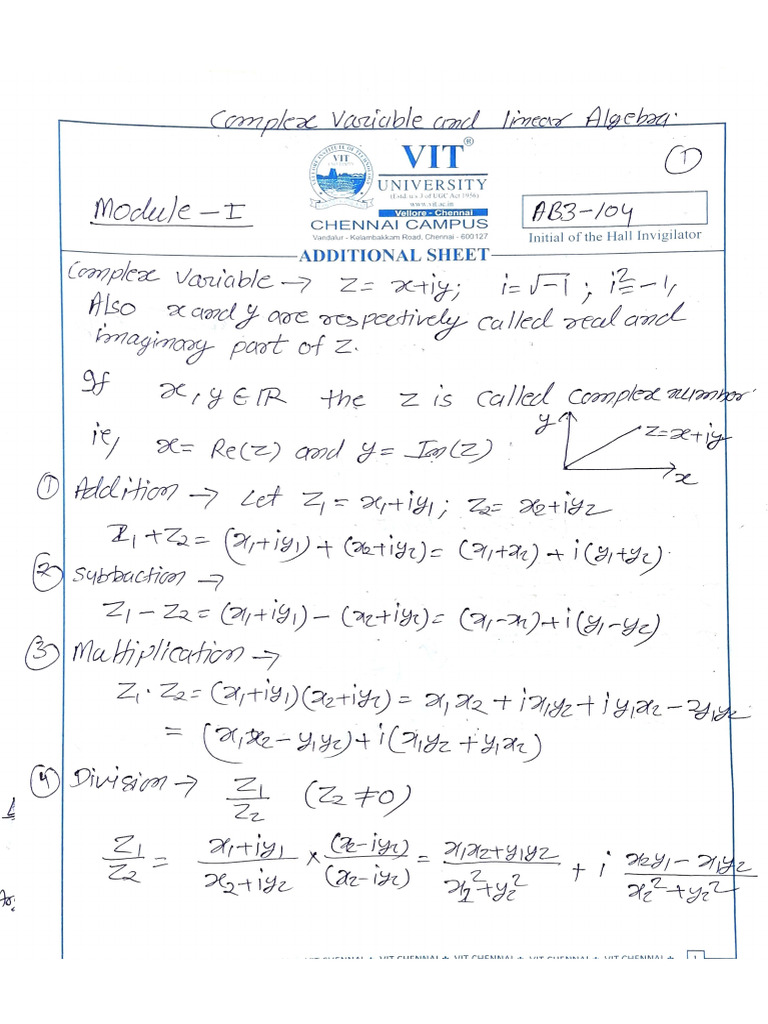 Complex Variable and linear Algebra.
VIT®
①
UNIVERSITY
(Estd. u/s 3 of UGC Act 1956)
www.vit.ac.in
Vellore - Chennai
Module - I
AB3-104
CHENNAI CAMPUS
Vandalur - Kelambakkam Road, Chennai - 600127
Initial of the Hall Invigilator
ADDITIONAL SHEET
Complex Variable → Z = x+iy; i=√-1 ; i²=-1,
Also x and y are respectively called real and
imaginary part of Z.
If x, y ∈ IR the Z is called complex number.
ie, x = Re(Z) and y = Im(Z).
y
Z=x+iy
x
① Addition → Let Z₁ = x₁+iy₁; Z₂ = x₂+iy₂
Z₁+Z₂ = (x₁+iy₁)+(x₂+iy₂) = (x₁+x₂)+i(y₁+y₂).
② Subtraction →
Z₁-Z₂ = (x₁+iy₁)-(x₂+iy₂) = (x₁-x₂)+i(y₁-y₂)
③ Multiplication →
Z₁.Z₂ = (x₁+iy₁)(x₂+iy₂) = x₁x₂+ix₁y₂+iy₁x₂-y₁y₂
= (x₁x₂-y₁y₂)+i(x₁y₂+y₁x₂)
④ Division → Z₁/Z₂ (Z₂≠0)
Z₁/Z₂ = (x₁+iy₁)/(x₂+iy₂) × (x₂-iy₂)/(x₂-iy₂) = (x₁x₂+y₁y₂)/(x₂²+y₂²) + i (x₂y₁-x₁y₂)/(x₂²+y₂²)
VIT CHENNAI ★ VIT CHENNAI ★ VIT CHENNAI ★ VIT CHENNAI ★ VIT CHENNAI ★
1